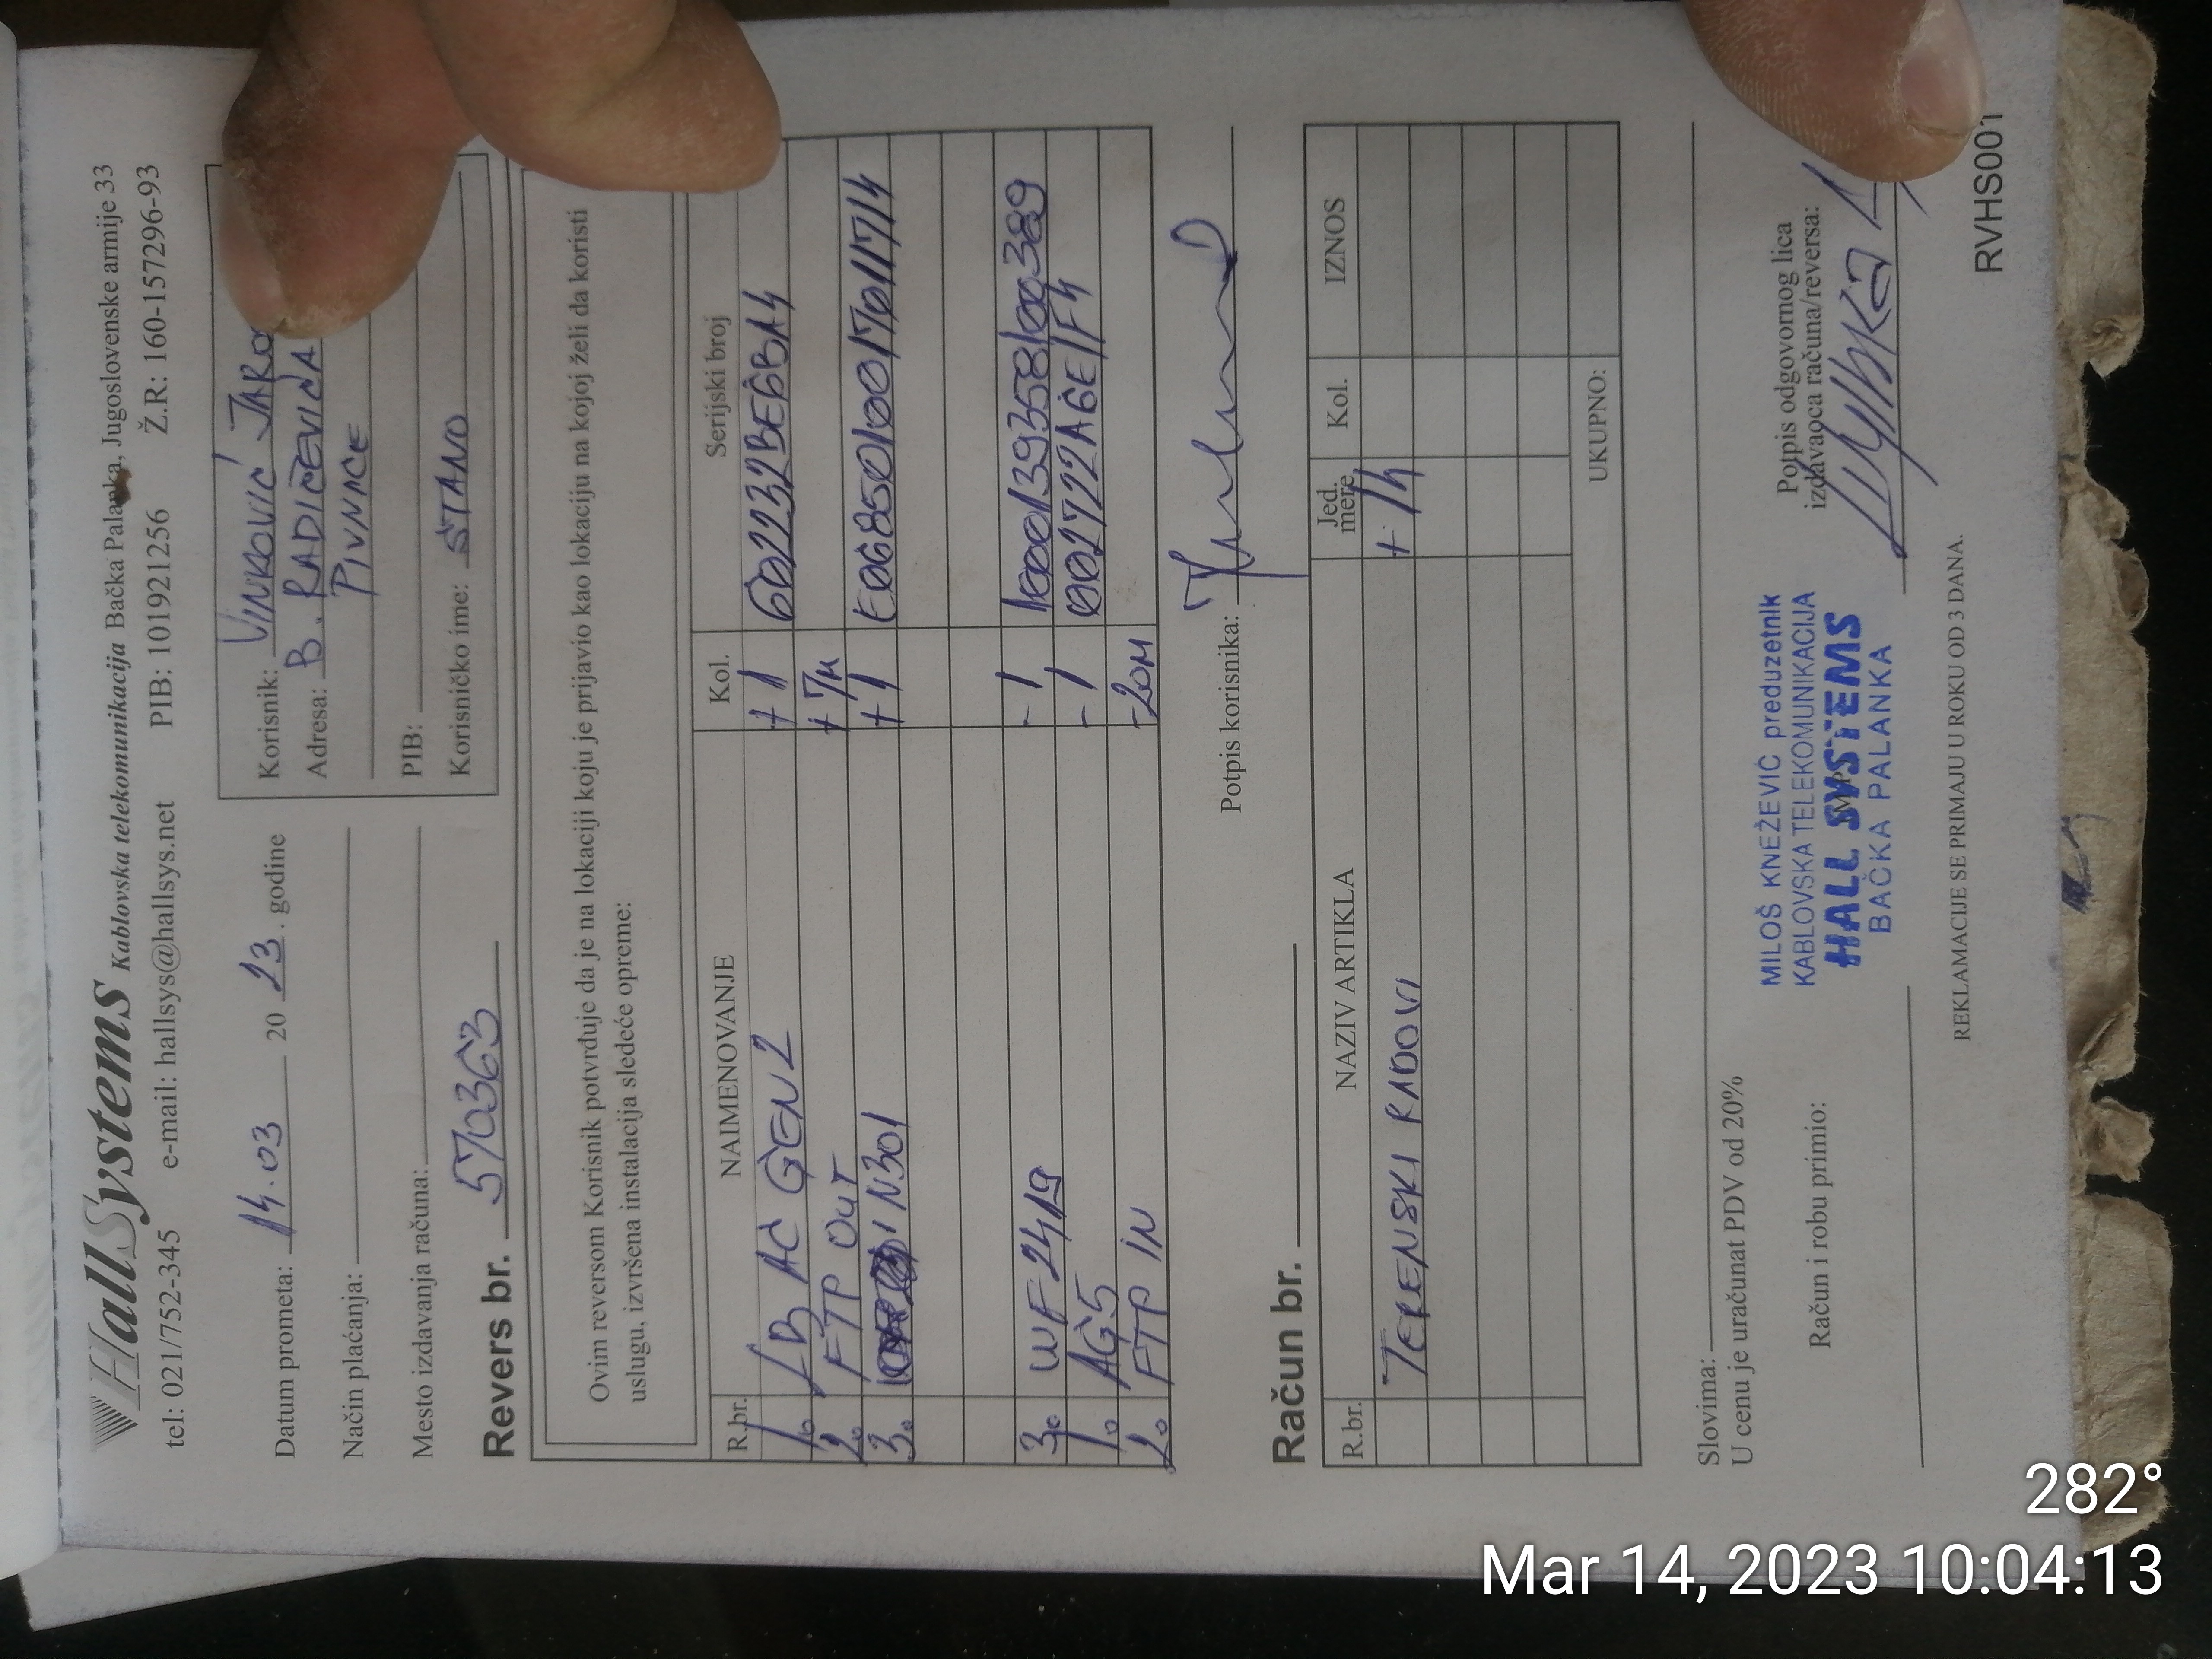 HallSystems Kablovska telekomunikacija Bačka Palanka, Jugoslovenske armije 33
tel: 021/752-345 e-mail: hallsys@hallsys.net PIB: 101921256 Ž.R: 160-157296-93
Datum prometa: 14.03 20 23. godine
Način plaćanja:
Mesto izdavanja računa:
Revers br. 570363
Korisnik: VINKOVIĆ JARO
Adresa: B. RADIČEVIĆA
PIVNICE
PIB:
Korisničko ime: STANO
Ovim reversom Korisnik potvrđuje da je na lokaciji koju je prijavio kao lokaciju na kojoj želi da koristi
uslugu, izvršena instalacija sledeće opreme:
R.br. NAIMENOVANJE Kol. Serijski broj
1. LB AC GEN2 +1 602232BE6BA4
2. FTP OUT +7M
3. N301 +1 E0685010017011714
3. WF2419 -1 1000139358100389
1. AG5 -1 002722A6E1F4
2. FTP IN -20M
Potpis korisnika:
Račun br.
R.br. NAZIV ARTIKLA Jed. mere Kol. IZNOS
TERENSKI RADOVI + 14
UKUPNO:
Slovima:
U cenu je uračunat PDV od 20%
Račun i robu primio:
MILOŠ KNEŽEVIĆ preduzetnik
KABLOVSKA TELEKOMUNIKACIJA
HALL SYSTEMS
BAČKA PALANKA
Potpis odgovornog lica
izdavaoca računa/reversa:
REKLAMACIJE SE PRIMAJU U ROKU OD 3 DANA.
RVHS001
282°
Mar 14, 2023 10:04:13